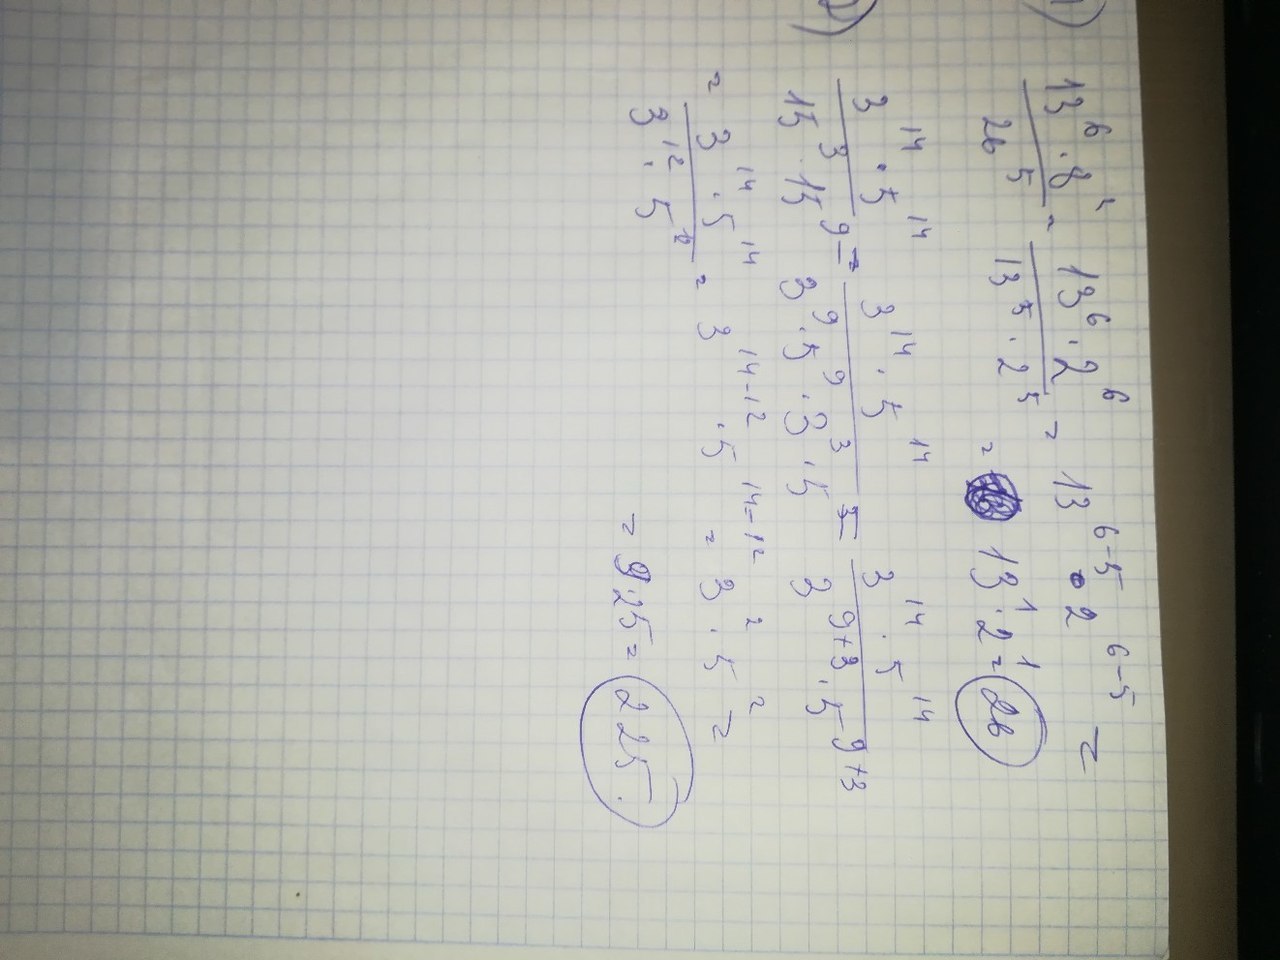 1) 13⁶ · 8² / 26⁵ = 13⁶ · 2⁶ / 13⁵ · 2⁵ = 13⁶⁻⁵ · 2⁶⁻⁵ =
= 13¹ · 2¹ = 26
2) 3¹⁴ · 5¹⁴ / 15³ · 15⁹ = 3¹⁴ · 5¹⁴ / 3⁹ · 5⁹ · 3³ · 5³ = 3¹⁴ · 5¹⁴ / 3⁹⁺³ · 5⁹⁺³
= 3¹⁴ · 5¹⁴ / 3¹² · 5¹² = 3¹⁴⁻¹² · 5¹⁴⁻¹² = 3² · 5² =
= 9·25 = 225.